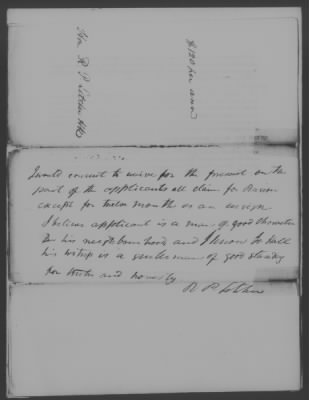 Hon R P Letcher
$120 per annum
I would consent to waive for the present on the
part of the applicants all claim for Pension
except for twelve month as an ensign
I believe applicant is a man of good character
in his neighbourhood and I know
his witness is a gentleman of good standing
for truth and honesty
R P Letcher